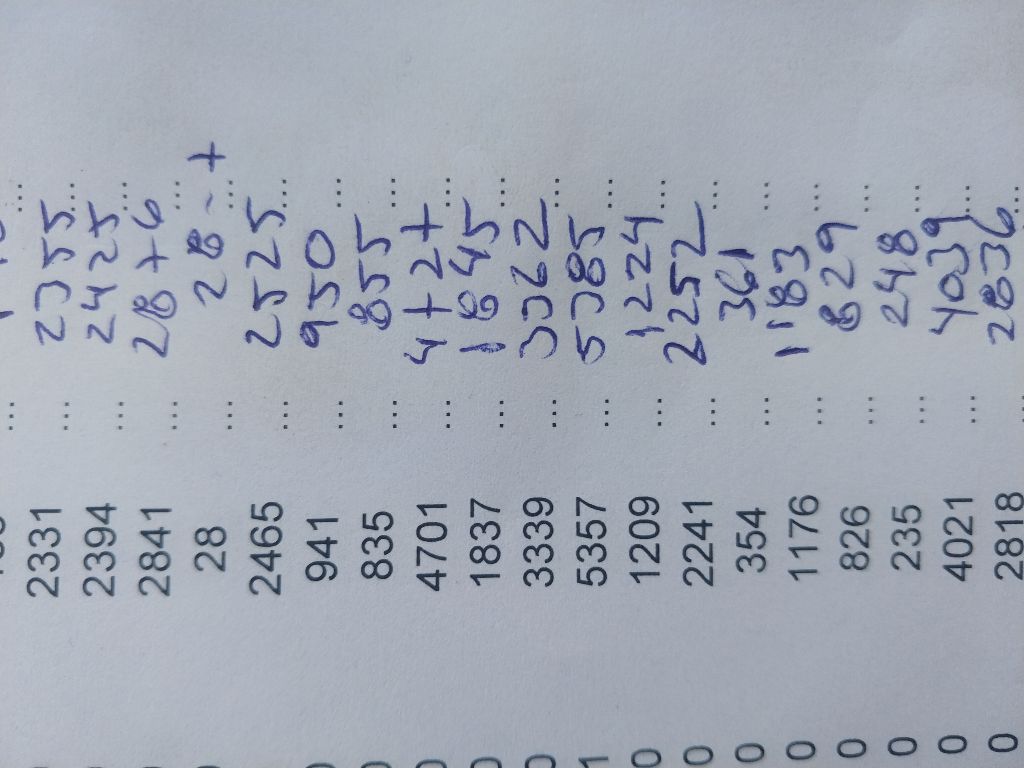 2331 ... 2355 ...
2394 ... 2425 ...
2841 ... 2876 ...
28 ... 28 - + ...
2465 ... 2525 ...
941 ... 950 ...
835 ... 855 ...
0 4701 ... 4727 ...
0 1837 ... 1845 ...
0 3339 ... 3362 ...
1 5357 ... 5385 ...
0 1209 ... 1224 ...
0 2241 ... 2252 ...
0 354 ... 361 ...
0 1176 ... 1183 ...
0 826 ... 829 ...
0 235 ... 248 ...
0 4021 ... 4039 ...
0 2818 ... 2836 ...